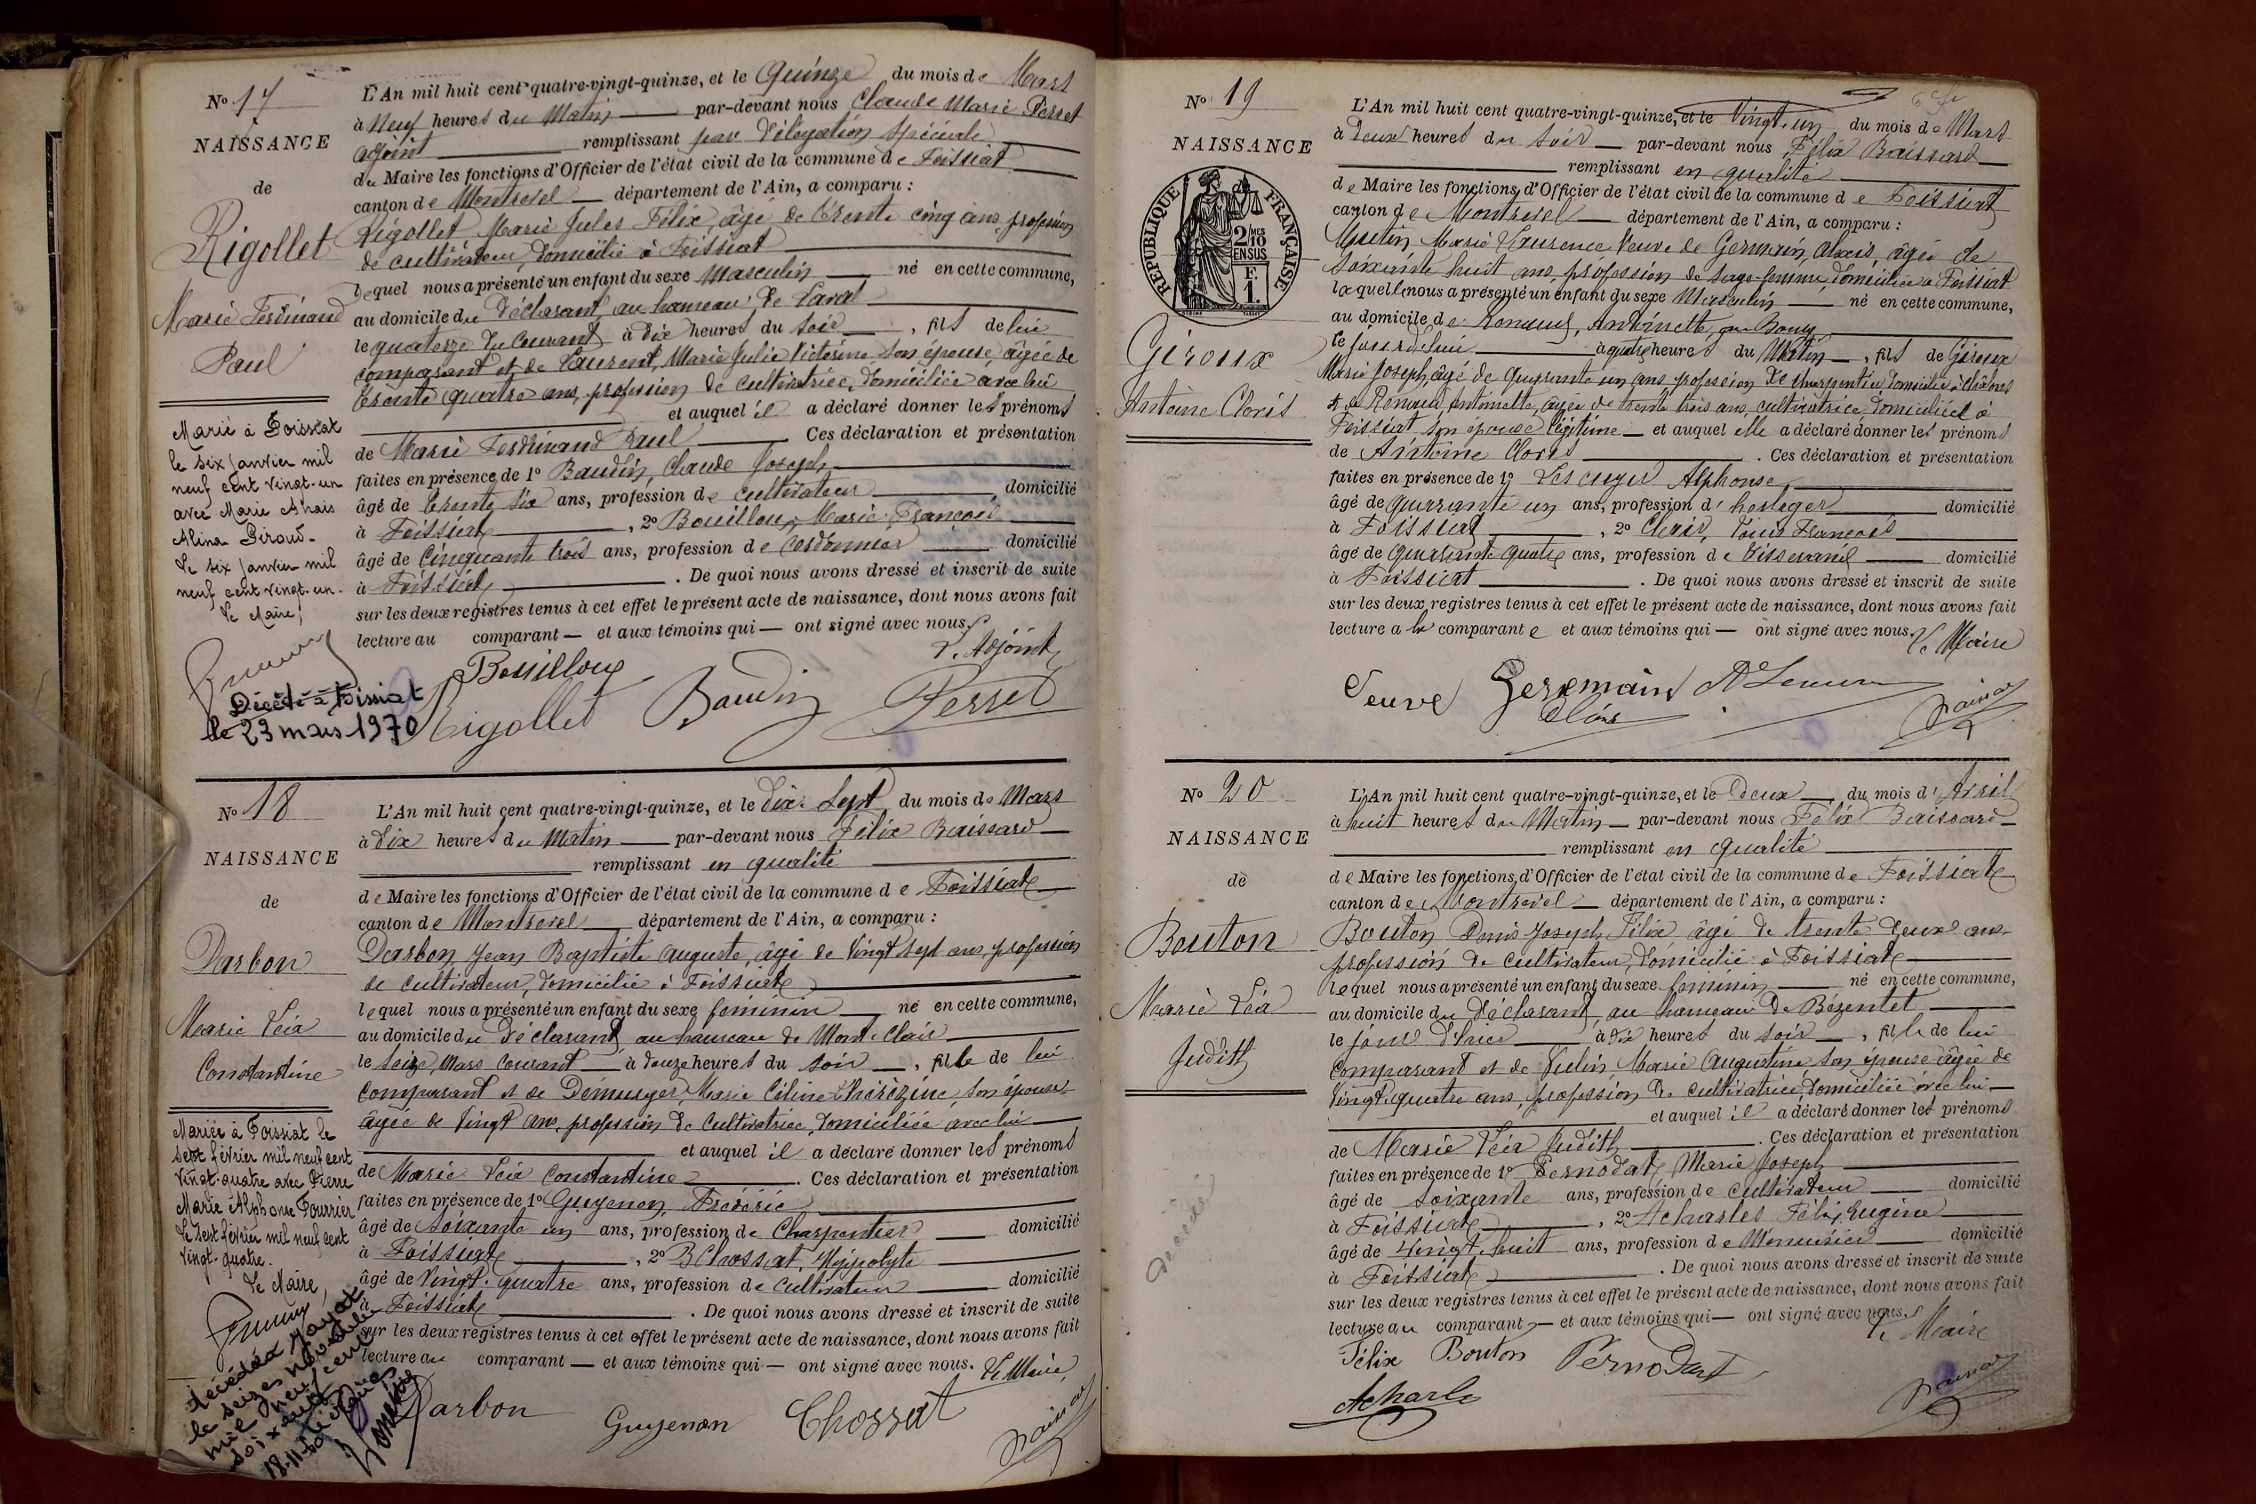 N° 17
NAISSANCE
de
Rigollet
Marie Ferdinand
Paul
Marié à Foissiat
le six Janvier mil
neuf cent vingt-un
avec Marie Anaïs
Alina Giroud.
Le six Janvier mil
neuf cent vingt-un.
Le Maire,
Décédé à Foissiat
le 23 mars 1970
L'An mil huit cent quatre-vingt-quinze, et le Quinze du mois de Mars
à Neuf heures du Matin par-devant nous Claude Marie Perret
adjoint remplissant par délégation spéciale
du Maire les fonctions d'Officier de l'état civil de la commune de Foissiat
canton de Montrevel département de l'Ain, a comparu :
Rigollet Marie Jules Félix, âgé de trente cinq ans, profession
de cultivateur, domicilié à Foissiat
lequel nous a présenté un enfant du sexe Masculin né en cette commune,
au domicile du déclarant, au hameau de Laval
le quatorze du courant, à dix heures du soir, fils de lui
comparant et de Laurent, Marie Julie Victorine son épouse, âgée de
trente quatre ans, profession de cultivatrice, domiciliée avec lui
et auquel il a déclaré donner les prénoms
de Marie Ferdinand Paul Ces déclaration et présentation
faites en présence de 1° Baudin, Claude Joseph,
âgé de trente six ans, profession de cultivateur domicilié
à Foissiat, 2° Bouilloux, Marie François
âgé de Cinquante trois ans, profession de cordonnier domicilié
à Foissiat. De quoi nous avons dressé et inscrit de suite
sur les deux registres tenus à cet effet le présent acte de naissance, dont nous avons fait
lecture au comparant — et aux témoins qui — ont signé avec nous.
L'adjoint
Bouilloux
Rigollet Baudin Perret
N° 18
NAISSANCE
de
Darbon
Marie Léa
Constantine
Mariée à Foissiat le
sept février mil neuf cent
vingt-quatre avec Pierre
Marie Alphonse Fourrier
Le sept février mil neuf cent
vingt-quatre.
Le Maire,
décédée à Jayat
le seize novembre
mil neuf cent
soixante
18-11-60
L'An mil huit cent quatre-vingt-quinze, et le dix-sept du mois de Mars
à dix heures du Matin par-devant nous Félix Baissard
remplissant en qualité
de Maire les fonctions d'Officier de l'état civil de la commune de Foissiat
canton de Montrevel département de l'Ain, a comparu :
Darbon Jean Baptiste Auguste, âgé de vingt sept ans, profession
de cultivateur, domicilié à Foissiat
lequel nous a présenté un enfant du sexe féminin né en cette commune,
au domicile du déclarant au hameau de Mont-Clair
le seize Mars courant à douze heures du soir, fille de lui
comparant et de Demurger, Marie Céline, son épouse
âgée de vingt ans, profession de cultivatrice, domiciliée avec lui
et auquel il a déclaré donner les prénoms
de Marie Léa Constantine. Ces déclaration et présentation
faites en présence de 1° Guyenon, Frédéric
âgé de soixante un ans, profession de Charpentier domicilié
à Foissiat, 2° Chossat, Hippolyte
âgé de vingt-quatre ans, profession de cultivateur domicilié
à Foissiat. De quoi nous avons dressé et inscrit de suite
sur les deux registres tenus à cet effet le présent acte de naissance, dont nous avons fait
lecture au comparant — et aux témoins qui — ont signé avec nous. Le Maire,
Darbon Guyenon Chossat Baissard
N° 19
NAISSANCE
RÉPUBLIQUE FRANÇAISE
2/10 MES
EN SUS
F.
1.
Giroux
Antoine Cloris
L'An mil huit cent quatre-vingt-quinze, et le Vingt-un du mois de Mars
à deux heures du soir par-devant nous Félix Baissard
remplissant en qualité
de Maire les fonctions d'Officier de l'état civil de la commune de Foissiat
canton de Montrevel département de l'Ain, a comparu :
Moulin Marie Laurence Veuve de Germain, Alexis, âgée de
soixante huit ans, profession de sage-femme, domiciliée à Foissiat
laquelle nous a présenté un enfant du sexe Masculin né en cette commune,
au domicile de Renaud, Antoinette,
le jour d'hui à quatre heures du Matin, fils de Giroux
Marie Joseph, âgé de quarante un ans, profession de charpentier domicilié à
et de Renaud Antoinette, âgée de trente trois ans, cultivatrice, domiciliée à
Foissiat son épouse légitime et auquel elle a déclaré donner les prénoms
de Antoine Cloris. Ces déclaration et présentation
faites en présence de 1° Lescuyer Alphonse,
âgé de quarante un ans, profession d'horloger domicilié
à Foissiat, 2° Clair, Louis François
âgé de quarante quatre ans, profession de Tisserand domicilié
à Foissiat. De quoi nous avons dressé et inscrit de suite
sur les deux registres tenus à cet effet le présent acte de naissance, dont nous avons fait
lecture a la comparante et aux témoins qui — ont signé avec nous.
Le Maire
Veuve Germain
Clair Baissard
N° 20
NAISSANCE
de
Bouton
Marie Léa
Judith
L'An mil huit cent quatre-vingt-quinze, et le deux du mois d'Avril
à huit heures du Matin par-devant nous Félix Baissard
remplissant en qualité
de Maire les fonctions d'Officier de l'état civil de la commune de Foissiat
canton de Montrevel département de l'Ain, a comparu :
Bouton Denis Joseph Félix âgé de trente deux ans
profession de cultivateur, domicilié à Foissiat
lequel nous a présenté un enfant du sexe féminin né en cette commune,
au domicile du déclarant, au hameau de Bézentet
le jour d'hier à dix heures du soir, fille de lui
comparant et de Marie Augustine son épouse âgée de
vingt-quatre ans, profession de cultivatrice, domiciliée avec lui
et auquel il a déclaré donner les prénoms
de Marie Léa Judith. Ces déclaration et présentation
faites en présence de 1° Pernodat, Marie Joseph
âgé de soixante ans, profession de cultivateur domicilié
à Foissiat, 2° Acharles Félix Eugène
âgé de Vingt-huit ans, profession de Menuisier domicilié
à Foissiat. De quoi nous avons dressé et inscrit de suite
sur les deux registres tenus à cet effet le présent acte de naissance, dont nous avons fait
lecture au comparant — et aux témoins qui — ont signé avec nous.
Le Maire
Félix Bouton Pernodat
Acharles Baissard